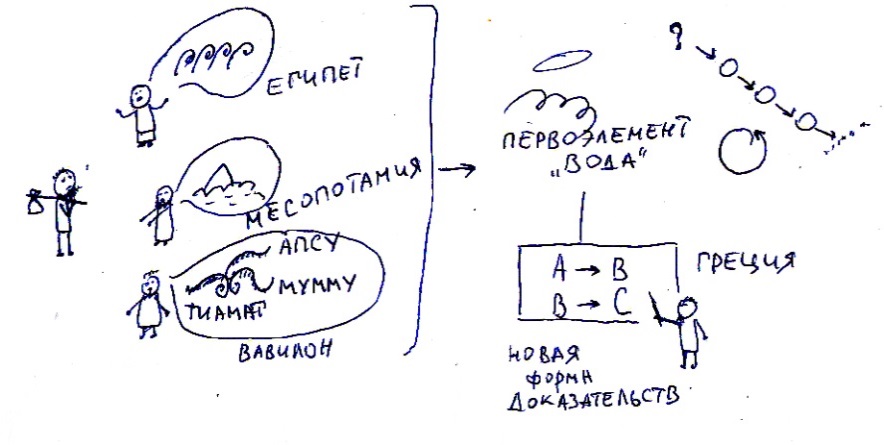 ЕГИПЕТ
МЕСОПОТАМИЯ
АПСУ
МУММУ
ТИАМАТ
ВАВИЛОН
?
ПЕРВОЭЛЕМЕНТ
„ВОДА“
A → B
B → C
ГРЕЦИЯ
НОВАЯ
ФОРМА
ДОКАЗАТЕЛЬСТВ